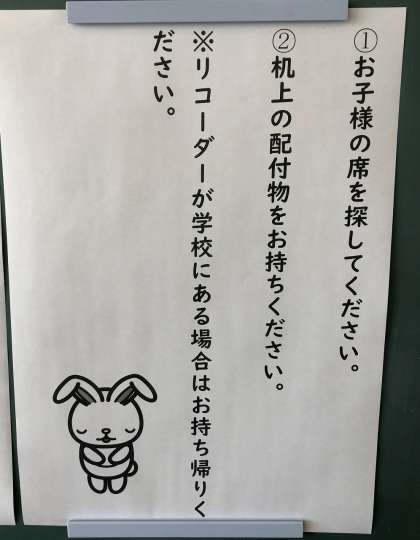 ①お子様の席を探してください。
②机上の配付物をお持ちください。
※リコーダーが学校にある場合はお持ち帰りく
ださい。